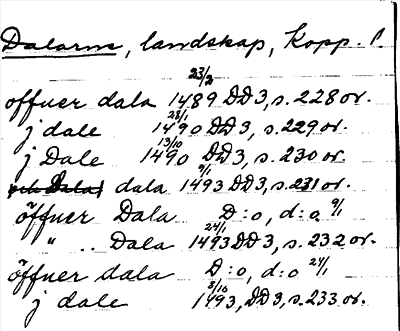 Dalarne, landskap, Kopp. l.
öffuer dala 23/2 1489 DD3, s. 228 or.
j dale 28/1 1490 DD3, s. 229 or.
j Dale 13/10 1490 DD3, s. 230 or.
dala 9/1 1493 DD3, s. 231 or.
öffuer Dala D:o, d:o 9/1
" .. Dala 24/1 1493 DD3, s. 232 or.
öffuer dala D:o, d:o 24/1
j dale 8/10 1493, DD3, s. 233 or.